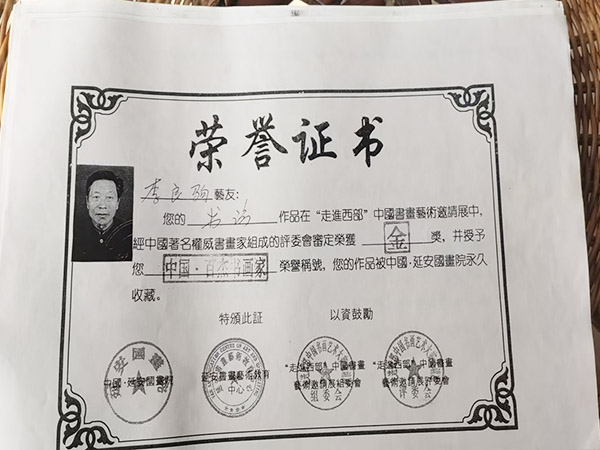 荣誉证书
李良驹藝友:
您的 书法 作品在“走進西部”中國書畫藝術邀請展中,
經中國著名權威書畫家組成的評委會審定榮獲 金 獎,并授予
您 中国·百杰书画家 榮譽稱號,您的作品被中國·延安國畫院永久
收藏。
特頒此証 以資鼓勵
中國·延安國畫院
延安書畫藝術教育
中心
“走進西部”中國書畫
藝術邀請展組委會
“走進西部”中國書畫
藝術邀請展評委會